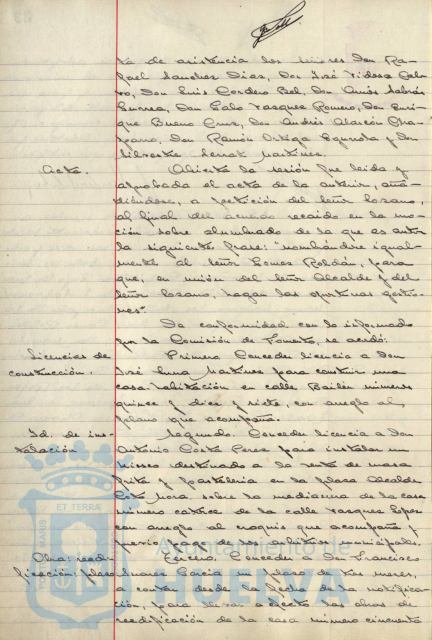 ta de asistencia los señores Don Ra-
fael Sanchez Diaz, Don José Vidosa Cal-
vo, Don Luis Cordero Bel, Don Amós Sabrás
Gurrea, Don Galo Vazquez Romero, Don Enri-
que Bueno Cruz, Don Andrés Alarcón Cha-
parro, Don Ramón Ortega y Don
Silvestre Martinez.
Acta. Abierta la sesión fué leida y
aprobada el acta de la anterior, aña-
diéndose, a petición del señor Lozano,
al final del acuerdo recaido en la mo-
ción sobre alumbrado de la que es autor
la siguiente frase: "nombrándose igual-
mente al señor Gomez Roldán, para
que, en unión del señor Alcalde y del
señor Lozano, hagan las oportunas gestio-
nes".
De conformidad con lo informado
por la Comisión de Fomento, se acordó:
Licencias de Primero. Conceder licencia a Don
construcción. José Martinez para construir una
casa habitación en calle Bailén números
quince y diez y siete, con arreglo al
plano que acompaña.
Id. de ins- Segundo. Conceder licencia a Don
talación Antonio Perez para instalar un
kiosco destinado a la venta de masa
frita y pastelería en la plaza Alcalde
Mora sobre la medianería de la casa
número catorce de la calle Vazquez Lopez
con arreglo al croquis que acompaña y
previo pago de los arbitrios municipales.
Obras reedi- Tercero. Conceder a Don Francisco
ficación: plazo Suarez Garcia un plazo de tres meses,
a contar desde la fecha de la notifica-
ción, para llevar a efecto las obras de
reedificación de la casa número cincuenta
Ayuntamiento de
HUELVA
ET TERRAE
MARIS